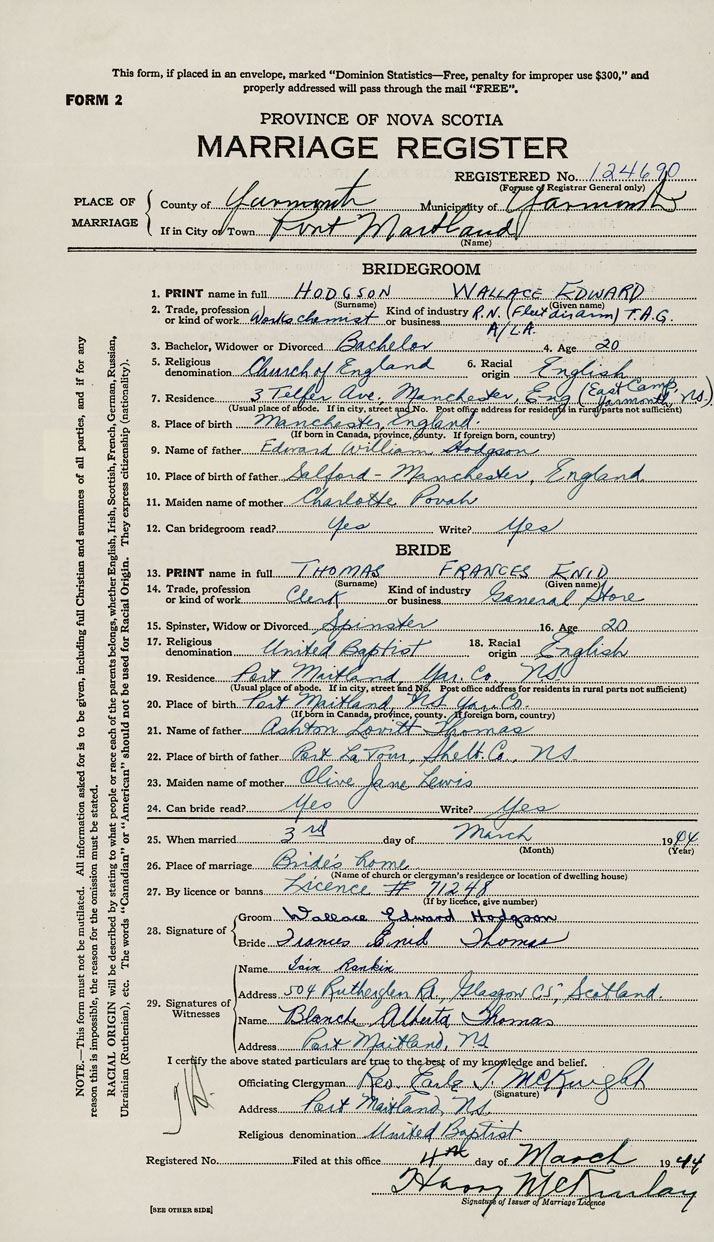 This form, if placed in an envelope, marked "Dominion Statistics—Free, penalty for improper use $300," and
properly addressed will pass through the mail "FREE".
FORM 2
PROVINCE OF NOVA SCOTIA
MARRIAGE REGISTER
REGISTERED No. 124690
(For use of Registrar General only)
PLACE OF MARRIAGE
County of Yarmouth Municipality of Yarmouth
If in City or Town Port Maitland
(Name)
BRIDEGROOM
1. PRINT name in full HODGSON WALLACE EDWARD
(Surname) (Given name)
2. Trade, profession or kind of work Works chemist Kind of industry or business R.N. (Fleet air arm) T.A.G.
A/LA.
3. Bachelor, Widower or Divorced Bachelor 4. Age 20
5. Religious denomination Church of England 6. Racial origin English
7. Residence 3 Telfer Ave., Manchester, Eng (East Camp, Yarmouth, NS.)
(Usual place of abode. If in city, street and No. Post office address for residents in rural parts not sufficient)
8. Place of birth Manchester, England.
(If born in Canada, province, county. If foreign born, country)
9. Name of father Edward William Hodgson
10. Place of birth of father Salford - Manchester, England
11. Maiden name of mother Charlotte Povah
12. Can bridegroom read? Yes Write? Yes
BRIDE
13. PRINT name in full THOMAS FRANCES ENID
(Surname) (Given name)
14. Trade, profession or kind of work Clerk Kind of industry or business General Store
15. Spinster, Widow or Divorced Spinster 16. Age 20
17. Religious denomination United Baptist 18. Racial origin English
19. Residence Port Maitland, Yar. Co., NS
(Usual place of abode. If in city, street and No. Post office address for residents in rural parts not sufficient)
20. Place of birth Port Maitland, NS Yar. Co.
(If born in Canada, province, county. If foreign born, country)
21. Name of father Ashton Lovitt Thomas
22. Place of birth of father Port La Tour, Shelb. Co., NS.
23. Maiden name of mother Olive Jane Lewis
24. Can bride read? Yes Write? Yes
25. When married 3rd day of March 1944
(Month) (Year)
26. Place of marriage Bride's home
(Name of church or clergyman's residence or location of dwelling house)
27. By licence or banns Licence # 71248
(If by licence, give number)
28. Signature of
Groom Wallace Edward Hodgson
Bride Frances Enid Thomas
29. Signatures of Witnesses
Name Iain Rankin
Address 504 Rutherglen Rd., Glasgow C5, Scotland.
Name Blanch Alberta Thomas
Address Port Maitland, NS
I certify the above stated particulars are true to the best of my knowledge and belief.
Officiating Clergyman Rev. Earle J. McKnight
(Signature)
Address Port Maitland, NS.
Religious denomination United Baptist
Registered No. Filed at this office 4th day of March 1944
Harry McKinlay
Signature of Issuer of Marriage Licence
[SEE OTHER SIDE]
NOTE.—This form must not be mutilated. All information asked for is to be given, including full Christian and surnames of all parties, and if for any
reason this is impossible, the reason for the omission must be stated.
RACIAL ORIGIN will be described by stating to what people or race each of the parents belongs, whether English, Irish, Scottish, French, German, Russian,
Ukrainian (Ruthenian), etc. The words "Canadian" or "American" should not be used for Racial Origin. They express citizenship (nationality).